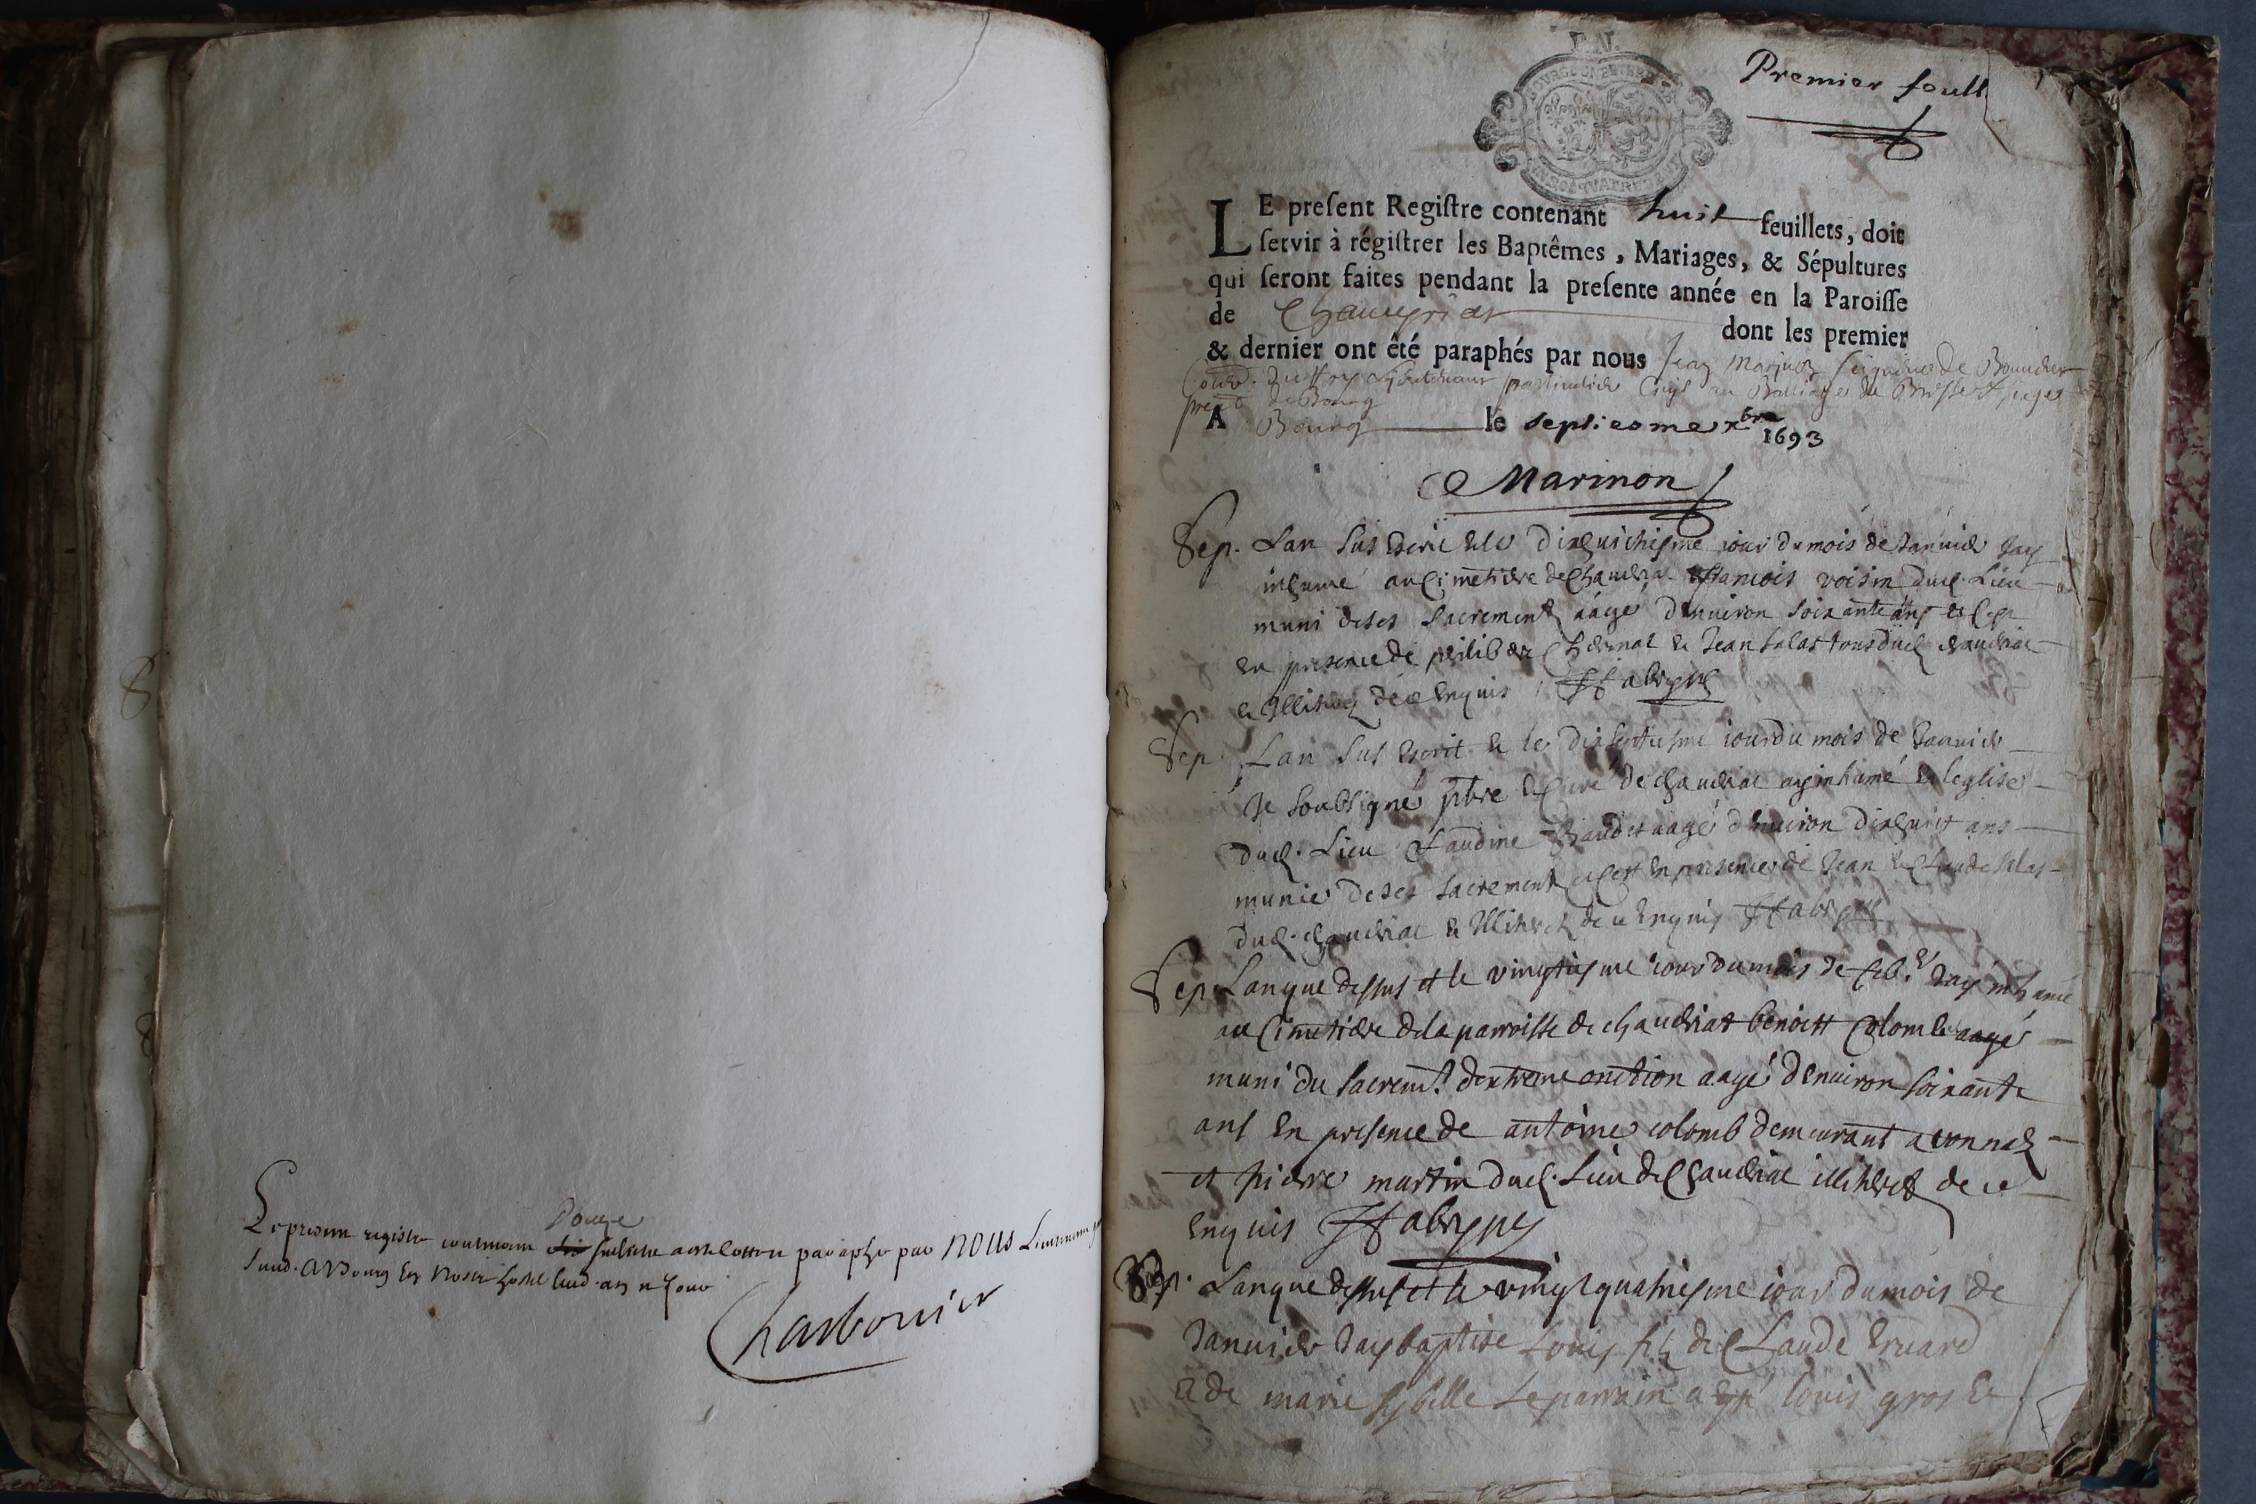 Le present registre contenant douze feuillets a este cotté et paraphé par nous Lieutenant
susd. A Bourg En nostre hostel lesd. an et jour
Charbonier
Premier feuill
LE preſent Regiſtre contenant huit feuillets, doit
ſervir à régiſtrer les Baptêmes, Mariages, & Sépultures
qui ſeront faites pendant la preſente année en la Paroiſſe
de Chaveyriat dont les premier
& dernier ont été paraphés par nous Jean Marinon seigneur de
lieutenant particulier au Bailliage de Bresse et siege
A Bourg le septiesme xbre 1693
Marinon
Sep. Lan sus escrit et le dixhuictiesme jour du mois de Januier Jay
inhumé au Cimetiere de Chaueriat francois voisin dud. Lieu
muni de ses sacrement aagé d'enuiron soixante ans et ce
en presence de philiber et Jean salas tous dud. chaueriat
et illiterez de ce enquis
Sep. Lan sus escrit et le dixseptiesme jour du mois de Januier
Je soubsigné pbre et Curé de chaueriat ay inhumé en leglise
dud. Lieu Claudine aagé denuiron dixhuit ans
munie de ses sacrement et ce en presence de Jean et Claude salas
dud. chaueriat et illiterez de ce enquis
Sep. Lan que dessus et le vingtiesme jour du mois de feb.er Jay inhumé
au Cimetiere de la parroisse de chaueriat benoitt Colomb aagé
muni du sacremt. dextreme onction aagé denuiron soixante
ans En presence de antoine colomb demeurant a
et pierre martin dud. Lieu de Chaueriat illiterez de ce
enquis
Lan que dessus et le vingt quatriesme jour du mois de
Januier Jay baptisé Louis fils de Claude
et de marie le parrain a esté louis gros et